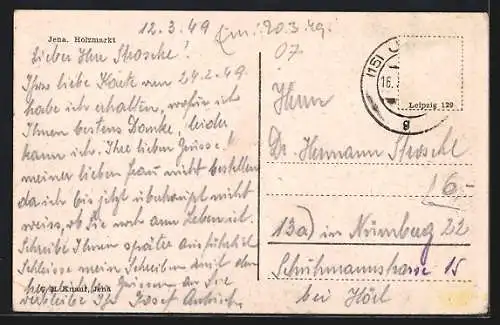 12.3.49
Em: 20.3.49.
07
Jena. Holzmarkt
Lieber Herr Stroschl!
Ihre liebe Karte vom 24.2.49
habe ich erhalten, wofür ich
Ihnen bestens Danke, leider
kann ich Ihre lieben Grüsse!
meiner lieben Frau nicht bestellen
da ich bis jetzt überhaupt nicht
weiss, ob Sie noch am Leben ist.
Schreibe Ihnen später ausführlich
Schliesse mein Schreiben mit den
Grüssen an Sie
verbleibe Ihr Josef
R. Knauf, Jena
(15)
16.
g
Leipzig 129
Herrn
Dr. Hermann Stroschl
16-
13a) in Nürnberg 22
Schuhmannstrasse 15
bei Hösl